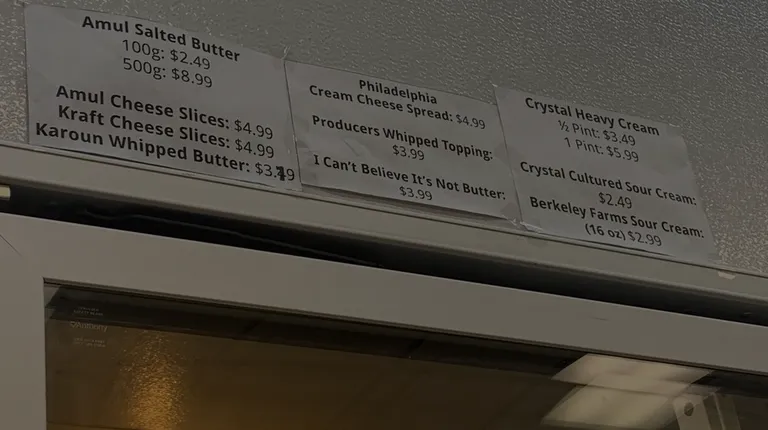 Amul Salted Butter
100g: $2.49
500g: $8.99
Amul Cheese Slices: $4.99
Kraft Cheese Slices: $4.99
Karoun Whipped Butter:
Philadelphia
Cream Cheese Spread: $4.99
Producers Whipped Topping:
$3.99
I Can't Believe It's Not Butter:
$3.99
Crystal Heavy Cream
½ Pint: $3.49
1 Pint: $5.99
Crystal Cultured Sour Cream:
$2.49
Berkeley Farms Sour Cream:
(16 oz) $2.99